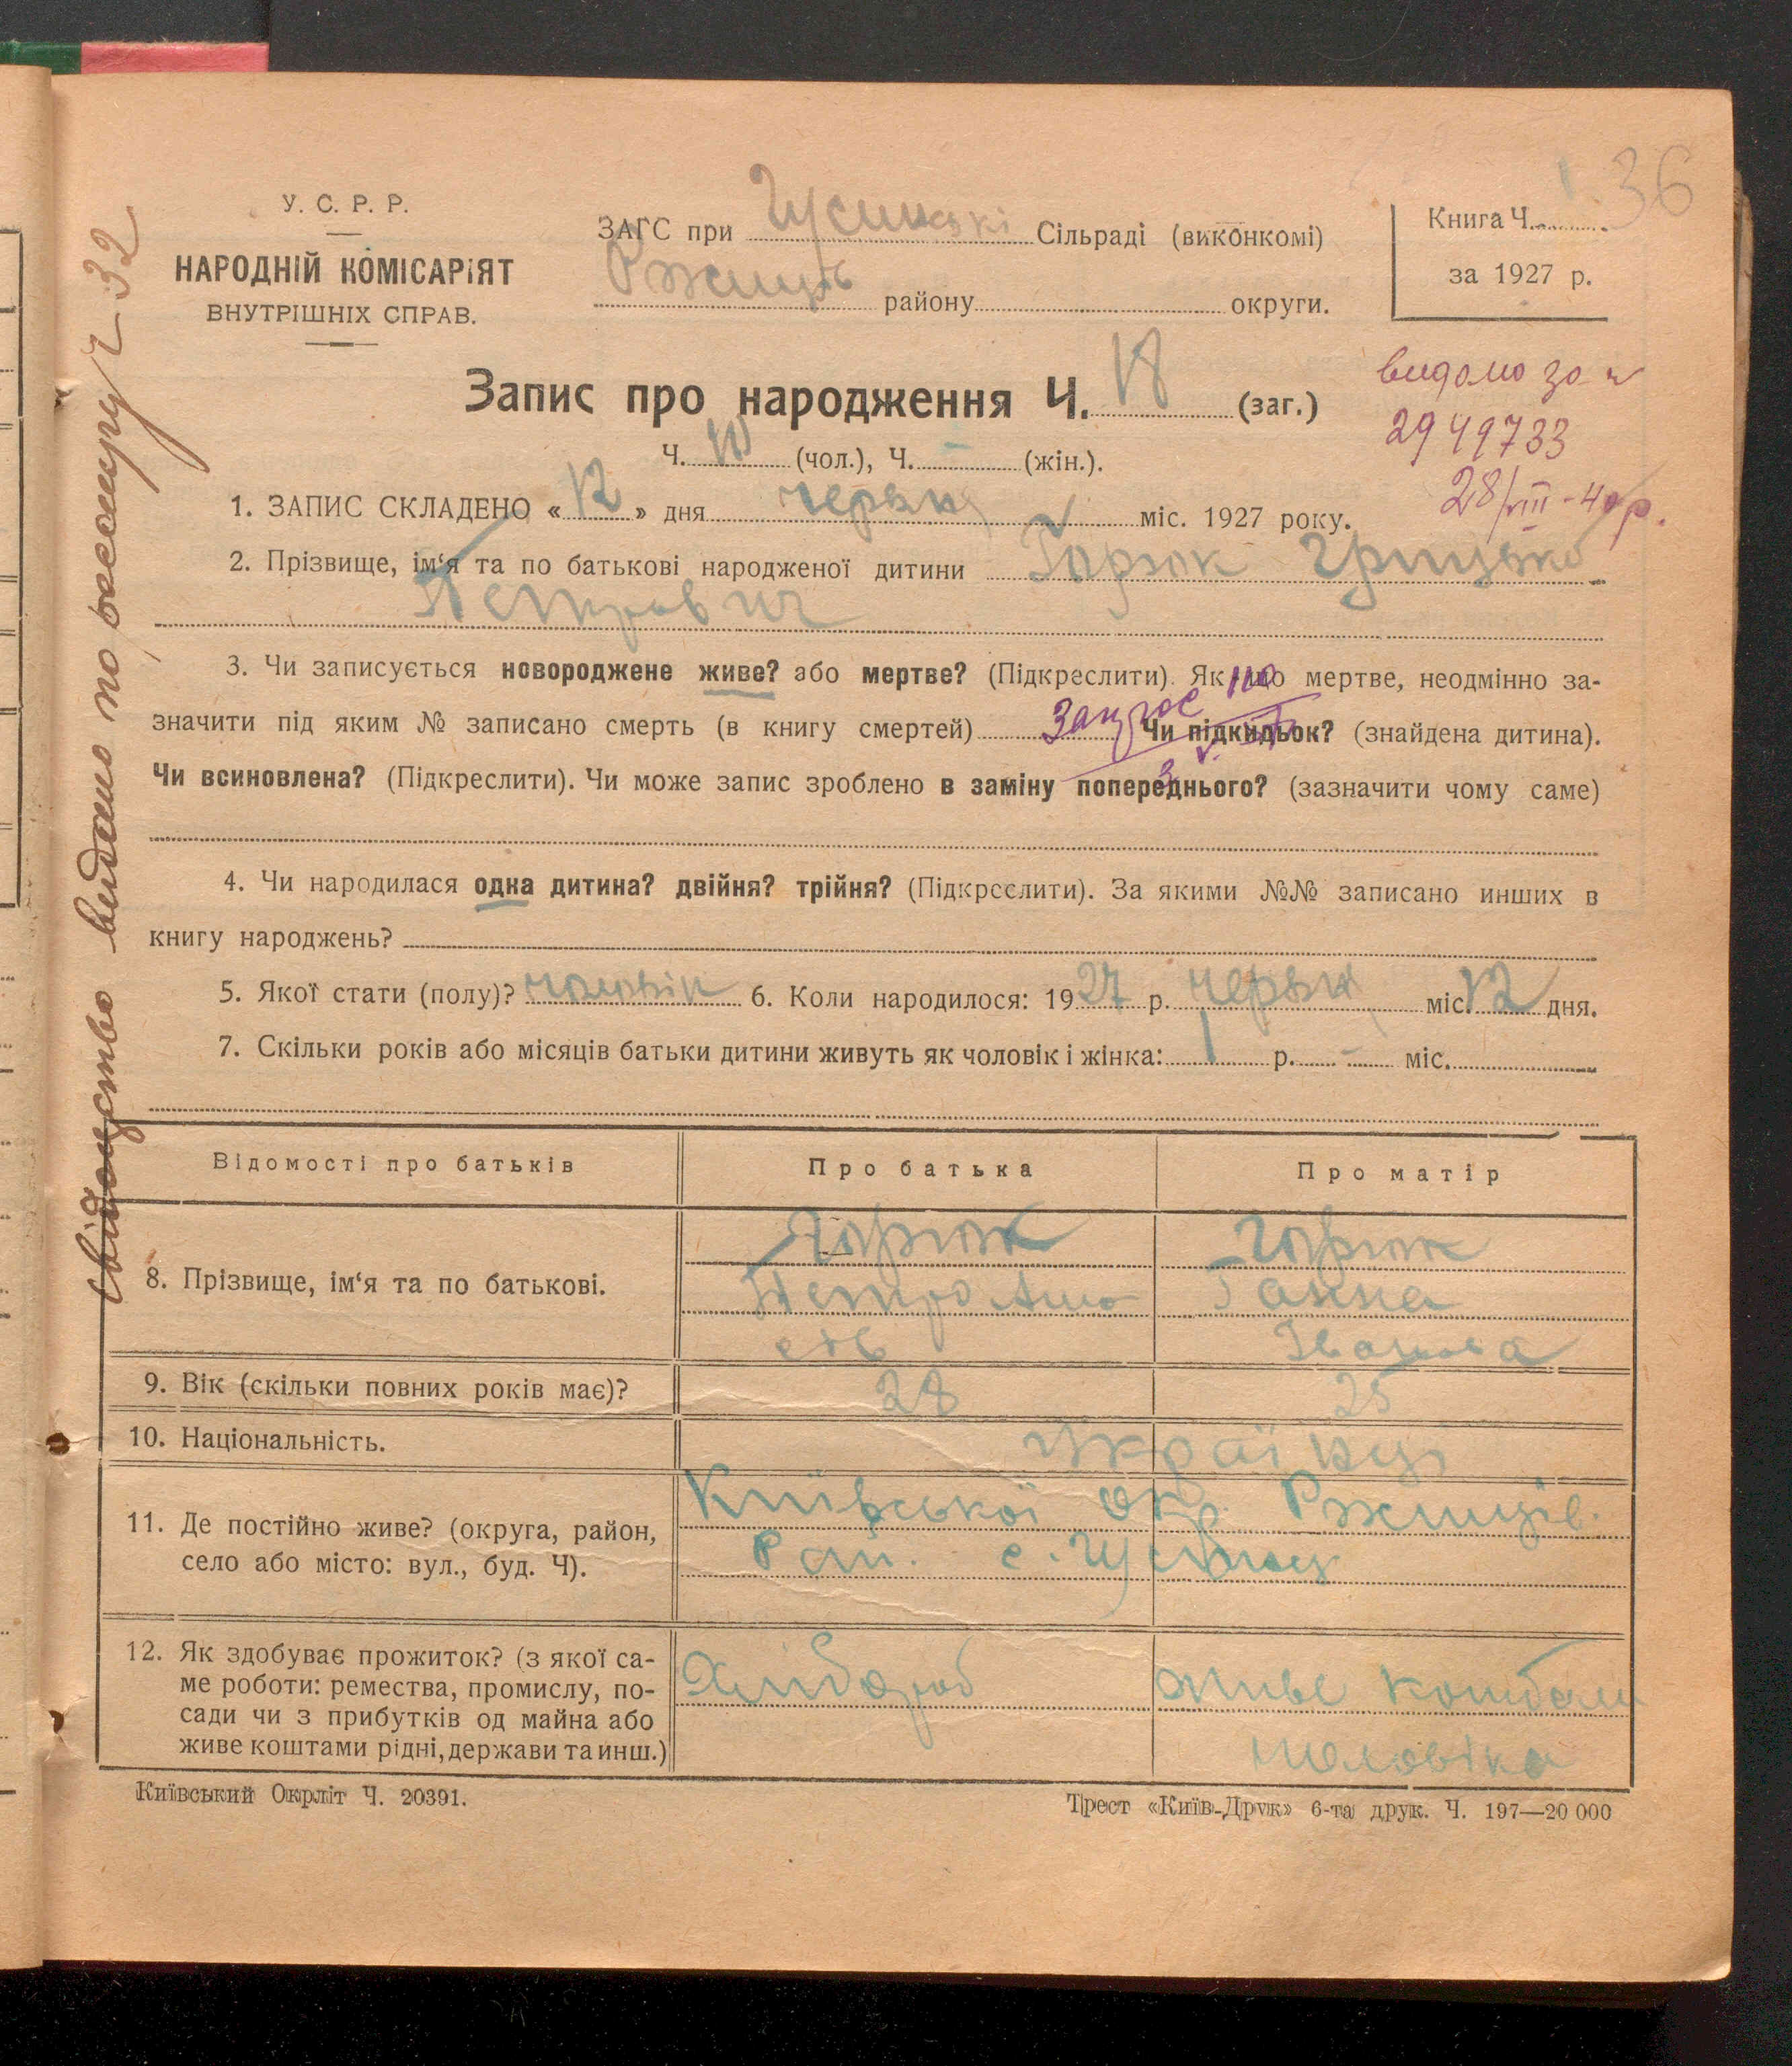 36
У. С. Р. Р.
НАРОДНІЙ КОМІСАРІЯТ
ВНУТРІШНІХ СПРАВ.
ЗАГС при Гусинські Сільраді (виконкомі)
Ржищів району округи.
Книга Ч.
за 1927 р.
Запис про народження Ч. 18 (заг.)
Ч. 10 (чол.), Ч. – (жін.).
видано за №
2949733
28/VIII-40р.
1. ЗАПИС СКЛАДЕНО «12» дня червня міс. 1927 року.
2. Прізвище, ім‘я та по батькові народженої дитини Горюк Грицько
Петрович
3. Чи записується новороджене живе? або мертве? (Підкреслити). Якщо мертве, неодмінно за-
значити під яким № записано смерть (в книгу смертей) Чи підкидьок? (знайдена дитина).
Запрос
Чи всиновлена? (Підкреслити). Чи може запис зроблено в заміну попереднього? (зазначити чому саме)
4. Чи народилася одна дитина? двійня? трійня? (Підкреслити). За якими №№ записано инших в
книгу народжень?
5. Якої стати (полу)? чоловік 6. Коли народилося: 1927 р. червня міс. 12 дня.
7. Скільки років або місяців батьки дитини живуть як чоловік і жінка: 1 р. – міс.
Відомості про батьків Про батька Про матір
8. Прізвище, ім‘я та по батькові.
Горюк
Петро
Горюк
Ганна
Іванова
9. Вік (скільки повних років має)? 28 25
10. Національність. Українці
11. Де постійно живе? (округа, район,
село або місто: вул., буд. Ч).
Київської окр. Ржищів.
Рай. с.
12. Як здобуває прожиток? (з якої са-
ме роботи: ремества, промислу, по-
сади чи з прибутків од майна або
живе коштами рідні, держави та инш.)
Хлібороб
живе коштами
чоловіка
Київський Окрліт Ч. 20391.
Трест «Київ-Друк» 6-та друк. Ч. 197—20 000
видано по
32